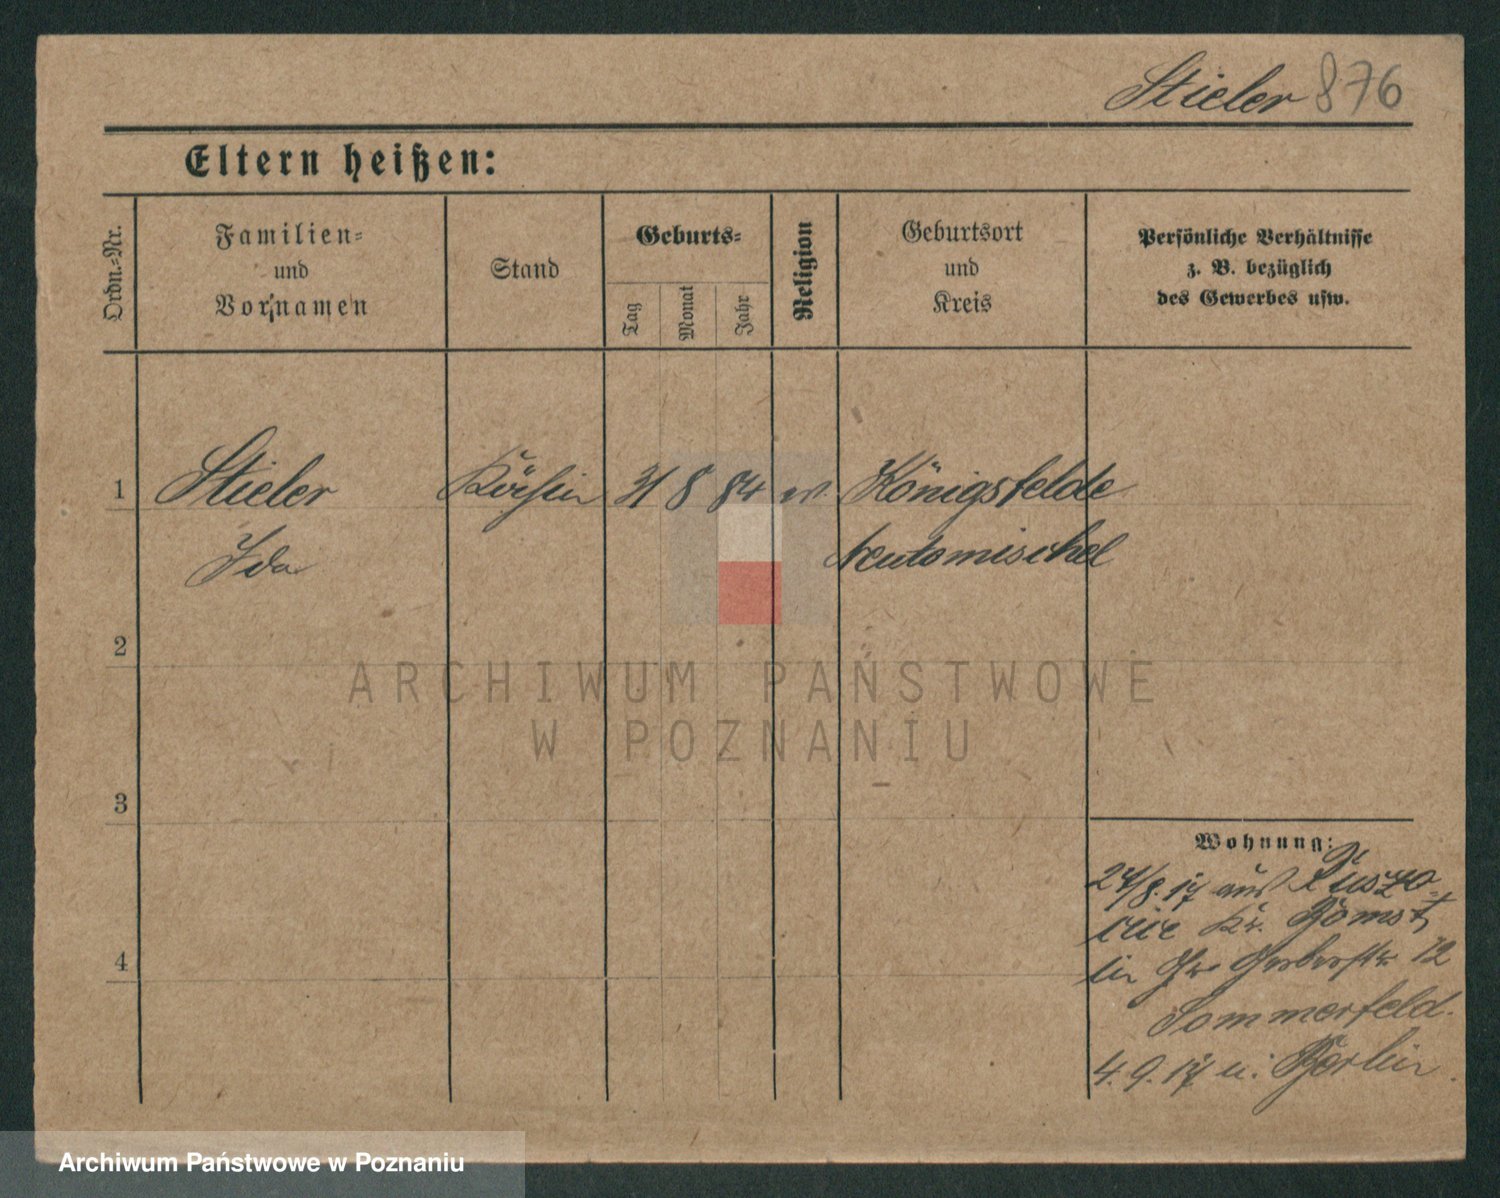 Stieler 876
Eltern heißen:
Ordn.-Nr.
Familien-
und
Vornamen
Stand
Geburts-
Tag
Monat
Jahr
Religion
Geburtsort
und
Kreis
Persönliche Verhältnisse
z. B. bezüglich
des Gewerbes usw.
1 Stieler Köchin 31 8 84 ev. Königsfelde
Ida Neutomischel
2
3
4
Wohnung:
24/8.17 aus
Kr. Bomst
in Gr. Gerberstr. 12
Sommerfeld.
4.9.17 n. Berlin.
ARCHIWUM PAŃSTWOWE
W POZNANIU
Archiwum Państwowe w Poznaniu